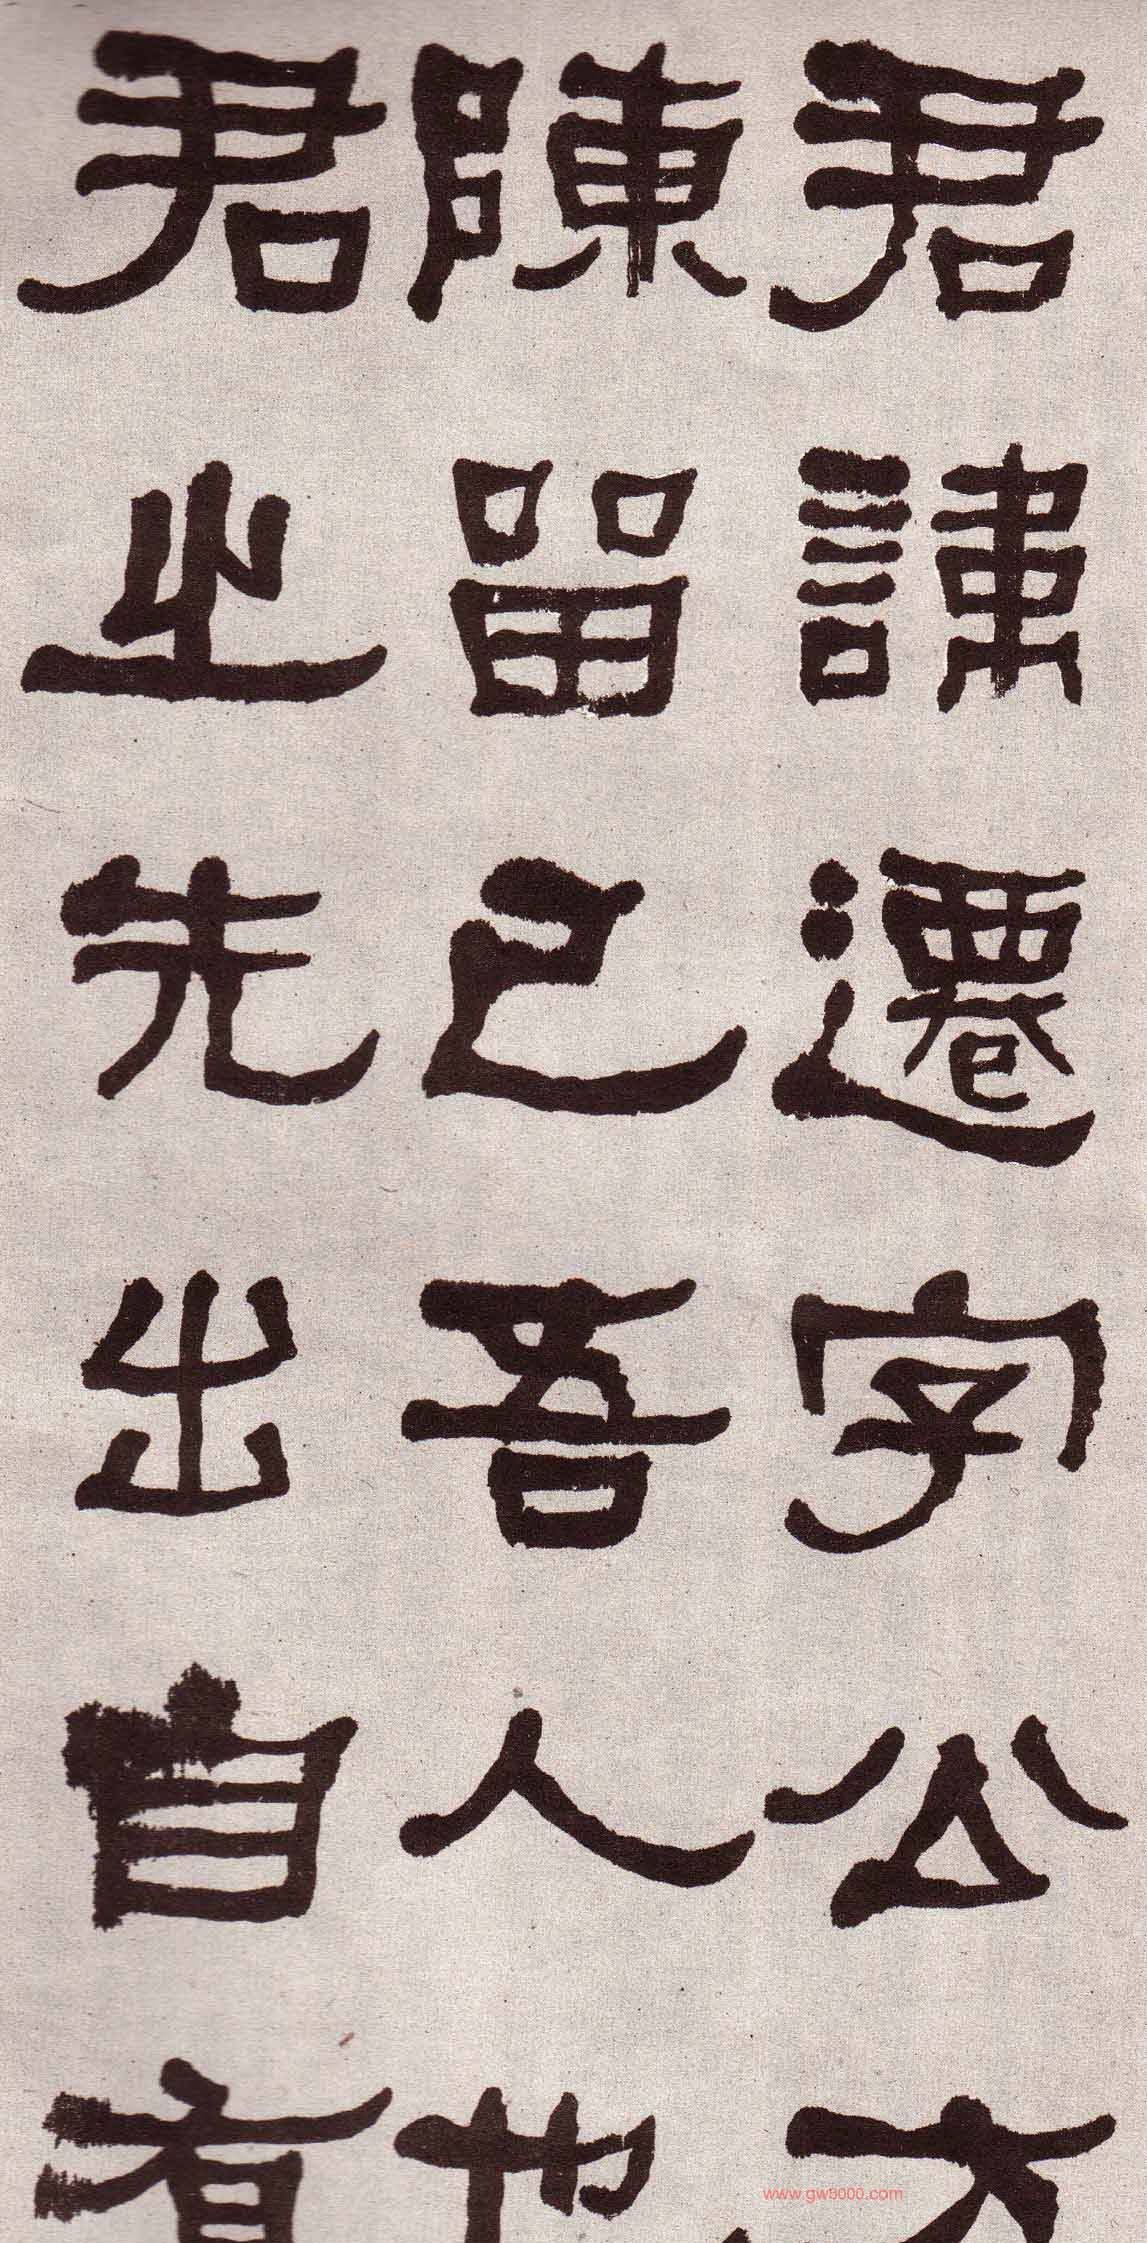 君諱遷字公方
陳留己吾人也
君之先出自有
www.gw8000.com